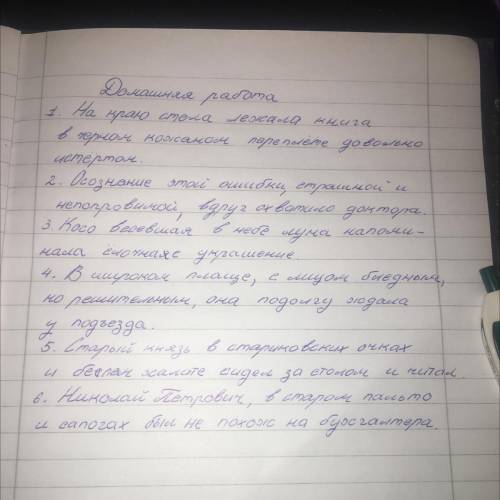 Домашняя работа
1. На краю стола лежала книга
в черном кожаном переплёте довольно
истертом.
2. Осознание этой ошибки, страшной и
непоправимой, вдруг охватило доктора.
3. Косо весевшая в небе луна напоми-
нала ёлочная украшение.
4. В широком плаще, с лицом бледным,
но решительным, она подолгу ждала
у подъезда.
5. Старый князь в стариковских очках
и белом халате сидел за столом и читал.
6. Николай Петрович, в старом пальто
и сапогах был не похож на бухгалтера.